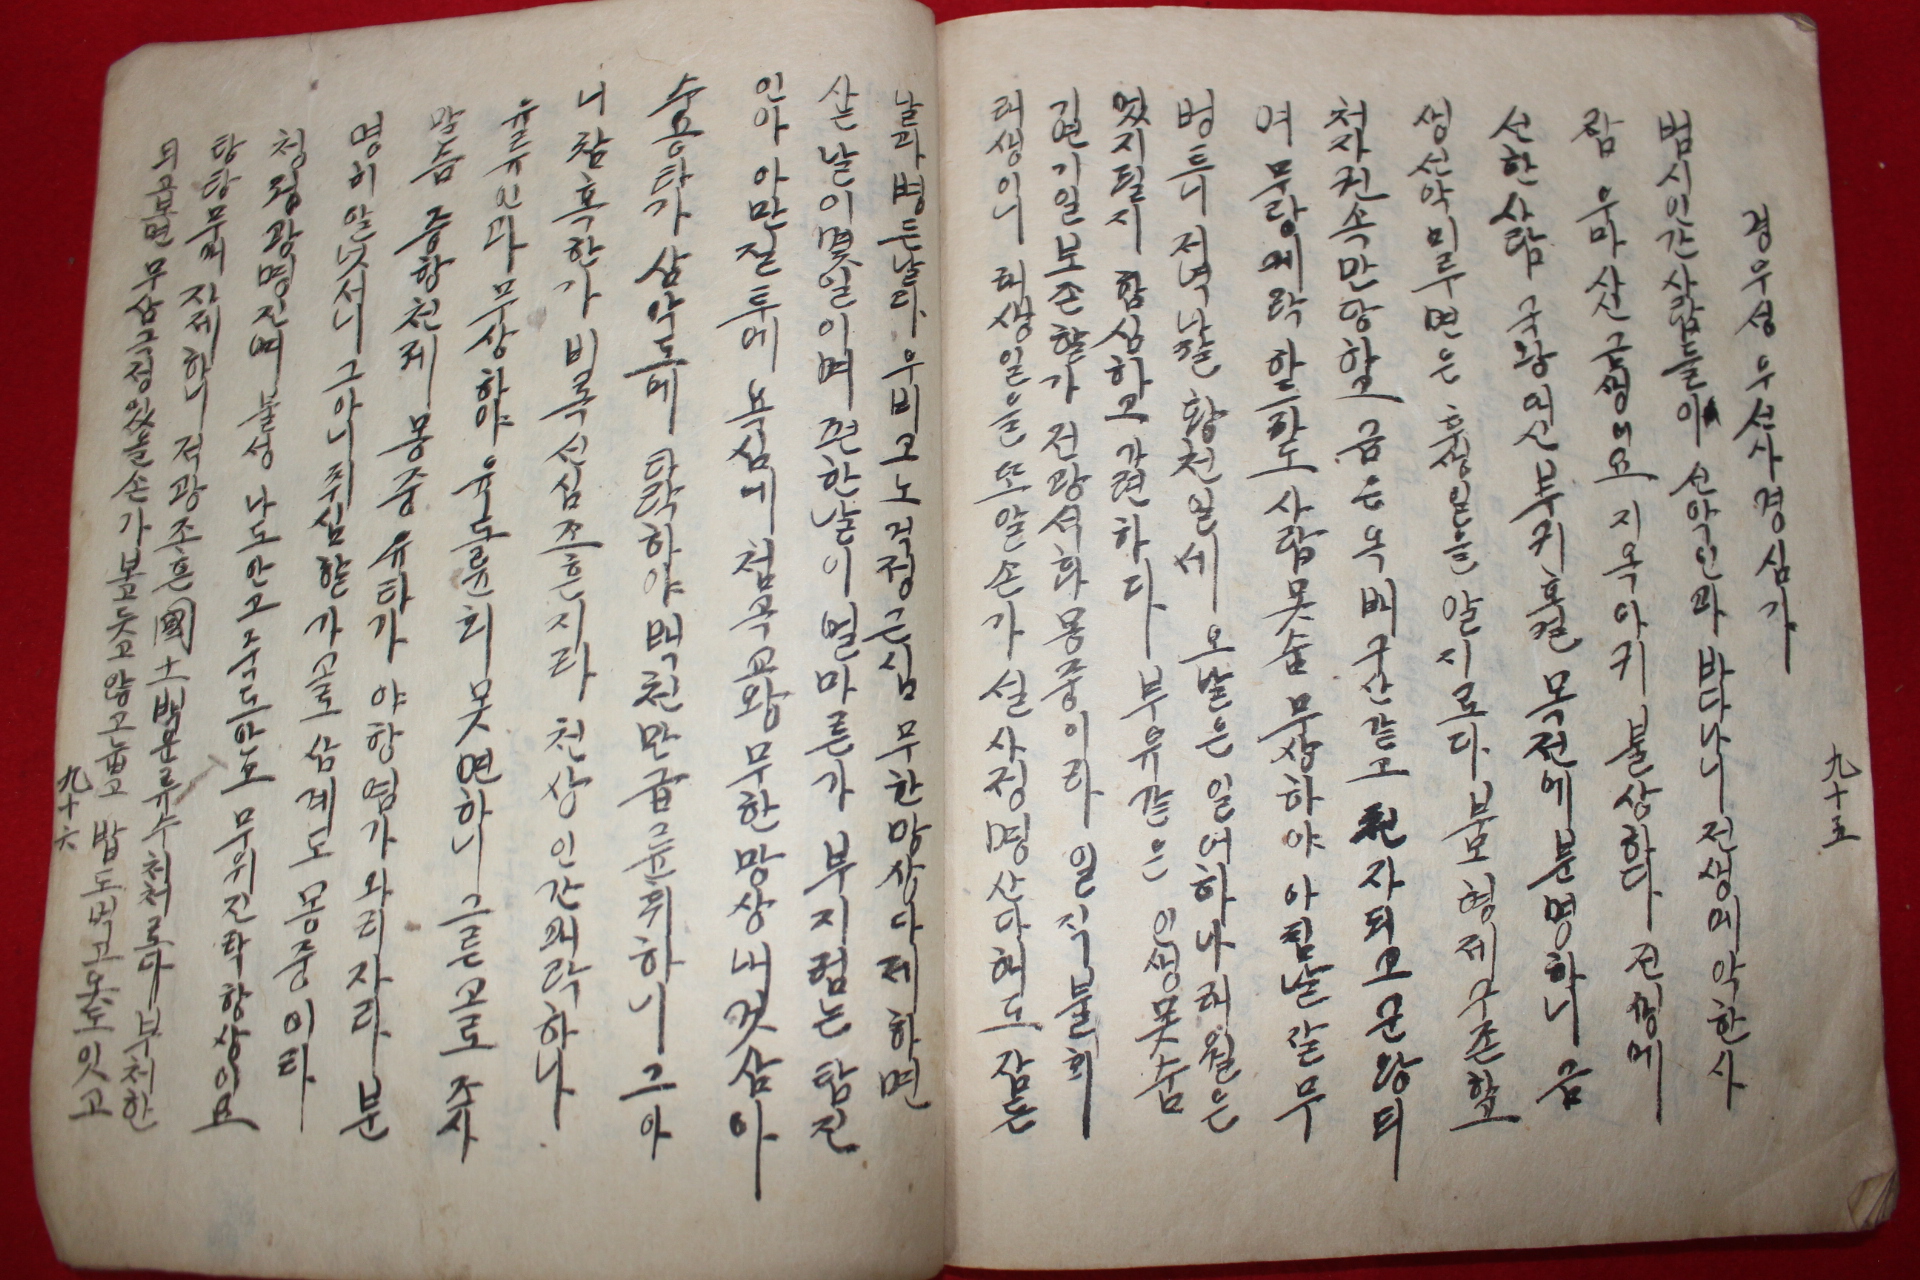 九十五
경우성 우선사경심가
범시인간사람들아 선악인과 바다나니 전생에 악한사
람 우마산금생이요 지옥아귀 불상하다 전생에
선한사람 국왕의신 부키호걸 목전에 분명하니 금
생선악미루면은 후생일을 알지로다 부모형제 구존하고
처자권속만당하고 금은옥배 구산같고 천자되고 군왕되
여 무량쾌락 할지라도 사람못숨 무상하야 아침날 잘 무
병트니 저녁나잘 황천일세 오날은 일어하나 래월은
었지될지 함심하고 가련하다 부유같은 인생못숨
긴연기일 보존할가 전광석화 몽중이라 일직불희
래생이니 래생일을 또알손가 설사정명산다해도 잠든
날과 병든날과 우비고노 걱정근심 무한망상 다 제하면
산날이 몇일이며 편한날이 얼마른가 부지럼는 탐진
인아 아만질투에 녹심에 첨곡교암 무한망상 내것삼아
수용타가 삼악도에 타락하야 백천만겁 윤휘하니 그아
니 참혹한가 비록선심조흔지라 천상인간쾌락하나
유루인과 무상하야 육도윤회 못면하니 그른고로 주사
말슴 증향천제 몽중유타가 야항염가와리자라 분
명히 일넛서니 그아니취심할가 고로 삼계도 몽중이라
청정광명진여불성 나도안고 죽도안고 무위진락향상이요
탕탕무애자제하니 적광조흔 國土 백운류수 처처로다 부처한
되고보면 무삼걱정있을손가 보고듯고 앉고눕고 밥도먹고 옷도입고
九十六